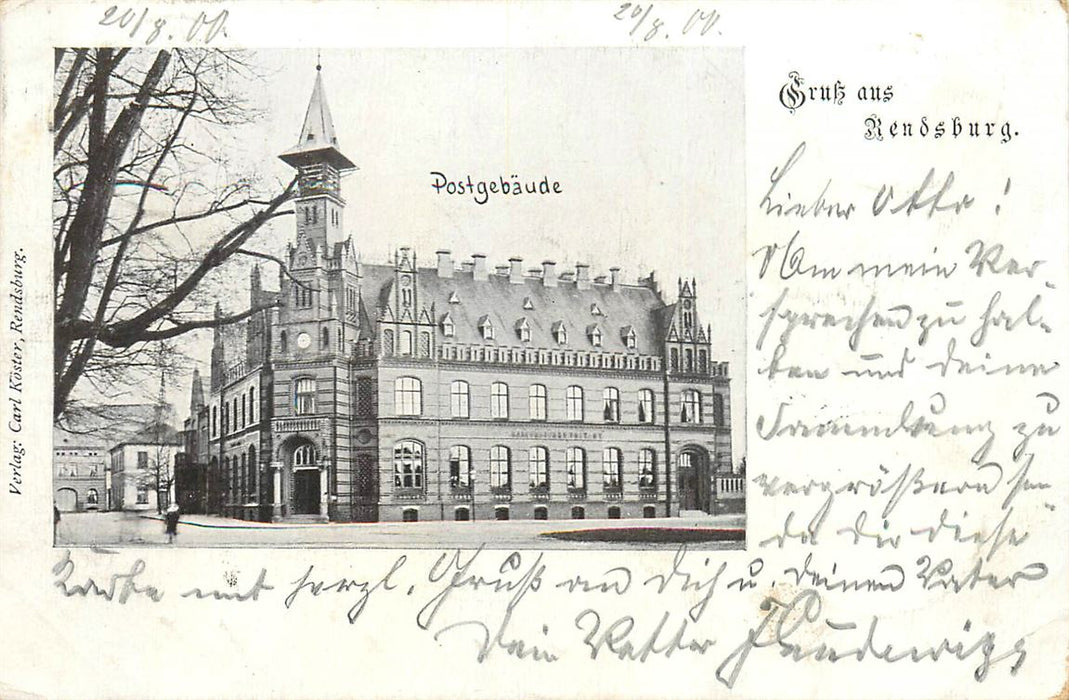 20/8.00.
20/8.00.
Gruß aus
Rendsburg.
Postgebäude
Verlag: Carl Köster, Rendsburg.
Lieber Otto!
Um mein Ver-
sprechen zu hal-
ten und deine
Sammlung zu
vergrößern sen-
de dir diese
Karte mit herzl. Gruß an Dich u. deinen Vater
Dein Vetter